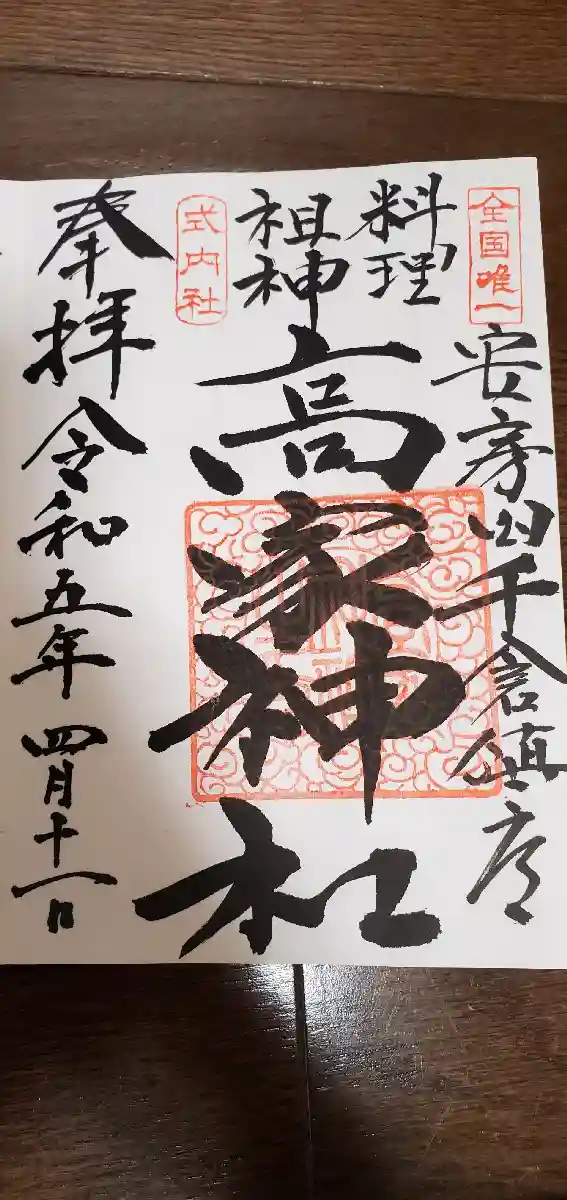 全国唯一
安房国千倉鎮座
料理
祖神
高家神社
式内社
奉拝 令和五年 四月十一日